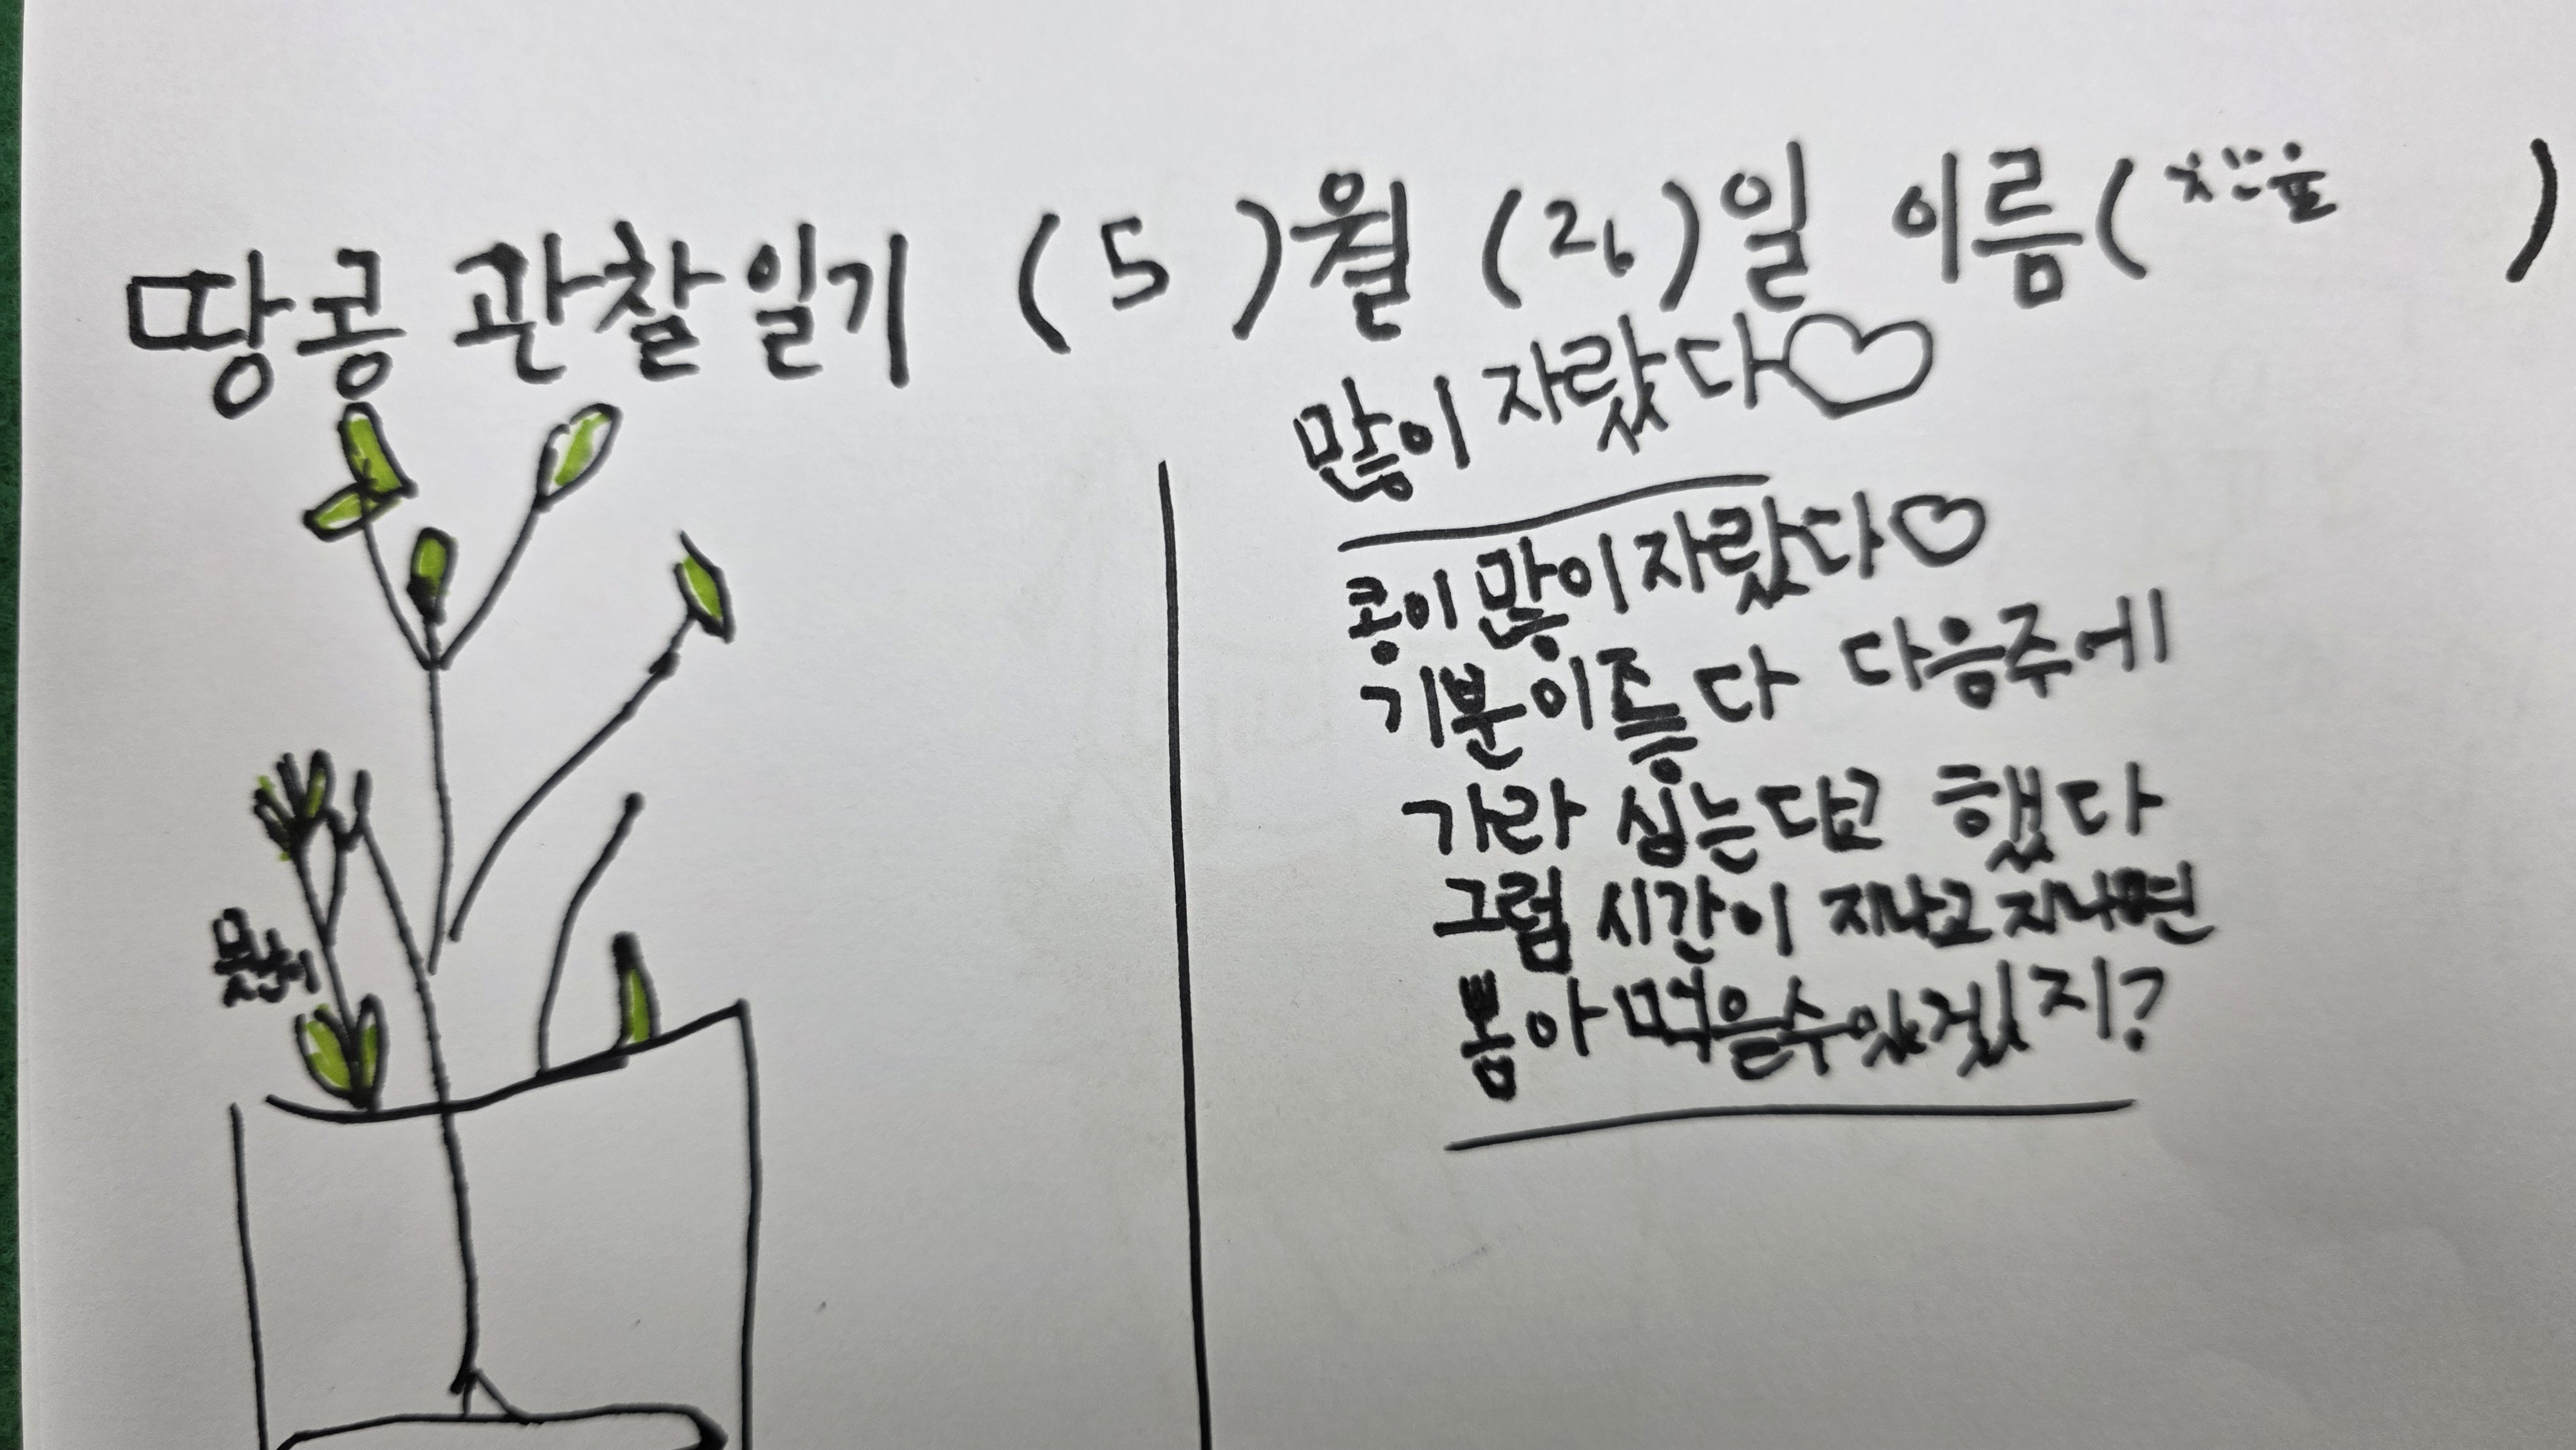 땅콩 관찰일기 (5)월 (26)일 이름( )
많이 자랐다♡
콩이 많이 자랐다♡
기분이 좋다 다음주에
가라 심는다고 했다
그럼 시간이 지나고 지나면
뽕아 먹을수있겠지?